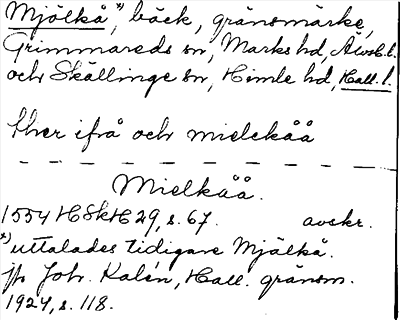 Mjölkå,*) bäck, gränsmärke,
Grimmareds sn, Marks hd, Älvsb. l.
och Skällinge sn, Himle hd, Hall. l.
ther ifrå och mielckåå
Mielkåå.
1554 HSkH 29, s. 67. avskr.
*) uttalades tidigare Mjälkå.
jfr Joh. Kalén, Hall. gränsm.
1924, s. 118.